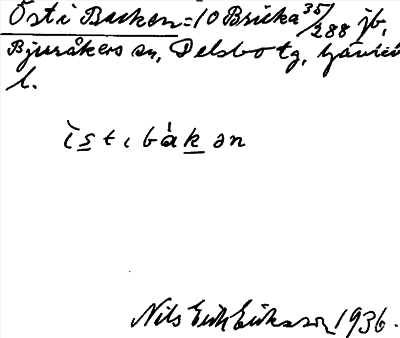 Öst i Backen = 10 Bricka 35/288 jb,
Bjuråkers sn, Delsbo tg, Gävleb
l.
ì s t ı b à k ə n
Nils Erik Eriksson 1936.